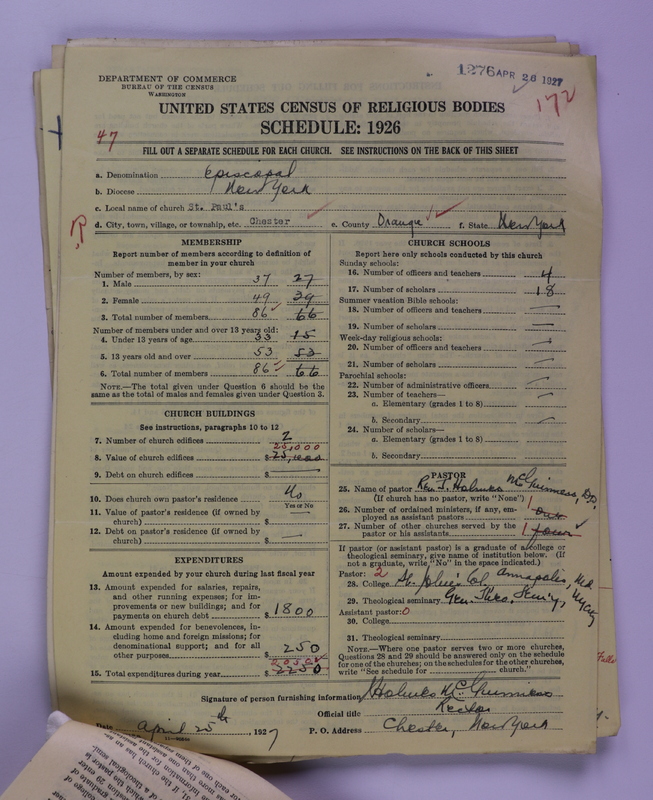 DEPARTMENT OF COMMERCE
BUREAU OF THE CENSUS
WASHINGTON
1276 APR 26 1927
172
UNITED STATES CENSUS OF RELIGIOUS BODIES
SCHEDULE: 1926
47
FILL OUT A SEPARATE SCHEDULE FOR EACH CHURCH. SEE INSTRUCTIONS ON THE BACK OF THIS SHEET
a. Denomination Episcopal
b. Diocese New York
c. Local name of church St. Paul's
d. City, town, village, or township, etc. Chester e. County Orange f. State New York
R
MEMBERSHIP
Report number of members according to definition of
member in your church
Number of members, by sex:
1. Male 37 27
2. Female 49 39
3. Total number of members. 86 66
Number of members under and over 13 years old:
4. Under 13 years of age. 33 15
5. 13 years old and over 53 53
6. Total number of members. 86 66
NOTE.—The total given under Question 6 should be the
same as the total of males and females given under Question 3.
CHURCH BUILDINGS
See instructions, paragraphs 10 to 12
7. Number of church edifices 2
25,000
8. Value of church edifices $ 25,000
9. Debt on church edifices $
10. Does church own pastor's residence No
Yes or No
11. Value of pastor's residence (if owned by
church) $
12. Debt on pastor's residence (if owned by
church) $
EXPENDITURES
Amount expended by your church during last fiscal year
13. Amount expended for salaries, repairs,
and other running expenses; for im-
provements or new buildings; and for
payments on church debt $ 1800
14. Amount expended for benevolences, in-
cluding home and foreign missions; for
denominational support; and for all
other purposes $ 250
15. Total expenditures during year $ 2250
CHURCH SCHOOLS
Report here only schools conducted by this church
Sunday schools:
16. Number of officers and teachers 4
17. Number of scholars 18
Summer vacation Bible schools:
18. Number of officers and teachers
19. Number of scholars
Week-day religious schools:
20. Number of officers and teachers
21. Number of scholars
Parochial schools:
22. Number of administrative officers
23. Number of teachers—
a. Elementary (grades 1 to 8)
b. Secondary
24. Number of scholars—
a. Elementary (grades 1 to 8)
b. Secondary
PASTOR
25. Name of pastor Rev. J. Holmes McGuinness, D.D.
(If church has no pastor, write "None")
26. Number of ordained ministers, if any, em-
ployed as assistant pastors 1 one
27. Number of other churches served by the
pastor or his assistants 1 four
If pastor (or assistant pastor) is a graduate of a college or
theological seminary, give name of institution below. (If
not a graduate, write "No" in the space indicated.)
Pastor: 2
28. College St. John's Col. Annapolis, Md.
29. Theological seminary Gen. Theo. Seminy, NYcy
Assistant pastor: 0
30. College
31. Theological seminary
NOTE.—Where one pastor serves two or more churches,
Questions 28 and 29 should be answered only on the schedule
for one of the churches; on the schedules for the other churches,
write "See schedule for church."
Signature of person furnishing information J Holmes McGuinness
Official title Rector
Date April 25th, 1927 P. O. Address Chester, New York